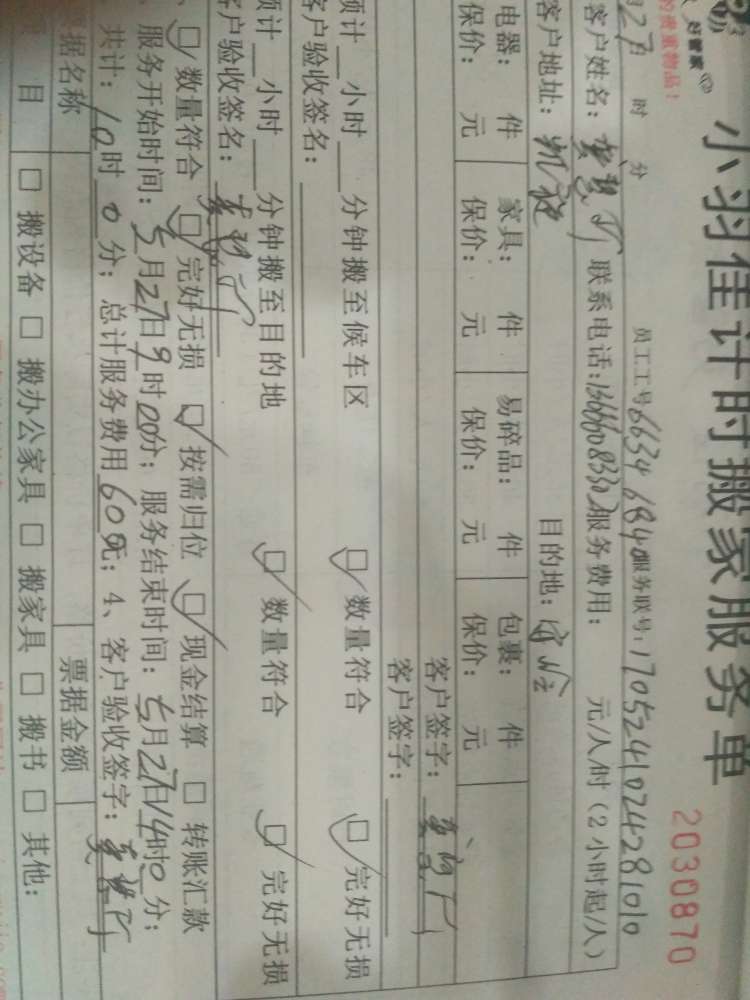 好管家
小羽佳计时搬家服务单
2030870
的贵重物品!
员工工号 6634 6840 服务联号: 170524102428100
27日 时 分
客户姓名: 联系电话: 服务费用: 元/人/时(2小时起/人)
客户地址: 凯旋 目的地:
电器: 件 家具: 件 易碎品: 件 包裹: 件
保价: 元 保价: 元 保价: 元 保价: 元
客户签字:
客户签字:
预计 小时 分钟搬至候车区 数量符合 完好无损
客户验收签名:
预计 小时 分钟搬至目的地 数量符合 完好无损
客户验收签名:
数量符合 完好无损 按需归位 现金结算 转账汇款
服务开始时间: 5月27日9时00分; 服务结束时间: 5月27日14时0分;
共计: 10时0分; 总计服务费用600元; 4、客户验收签字:
票据名称 票据金额
项目 搬设备 搬办公家具 搬家具 搬书 其他: